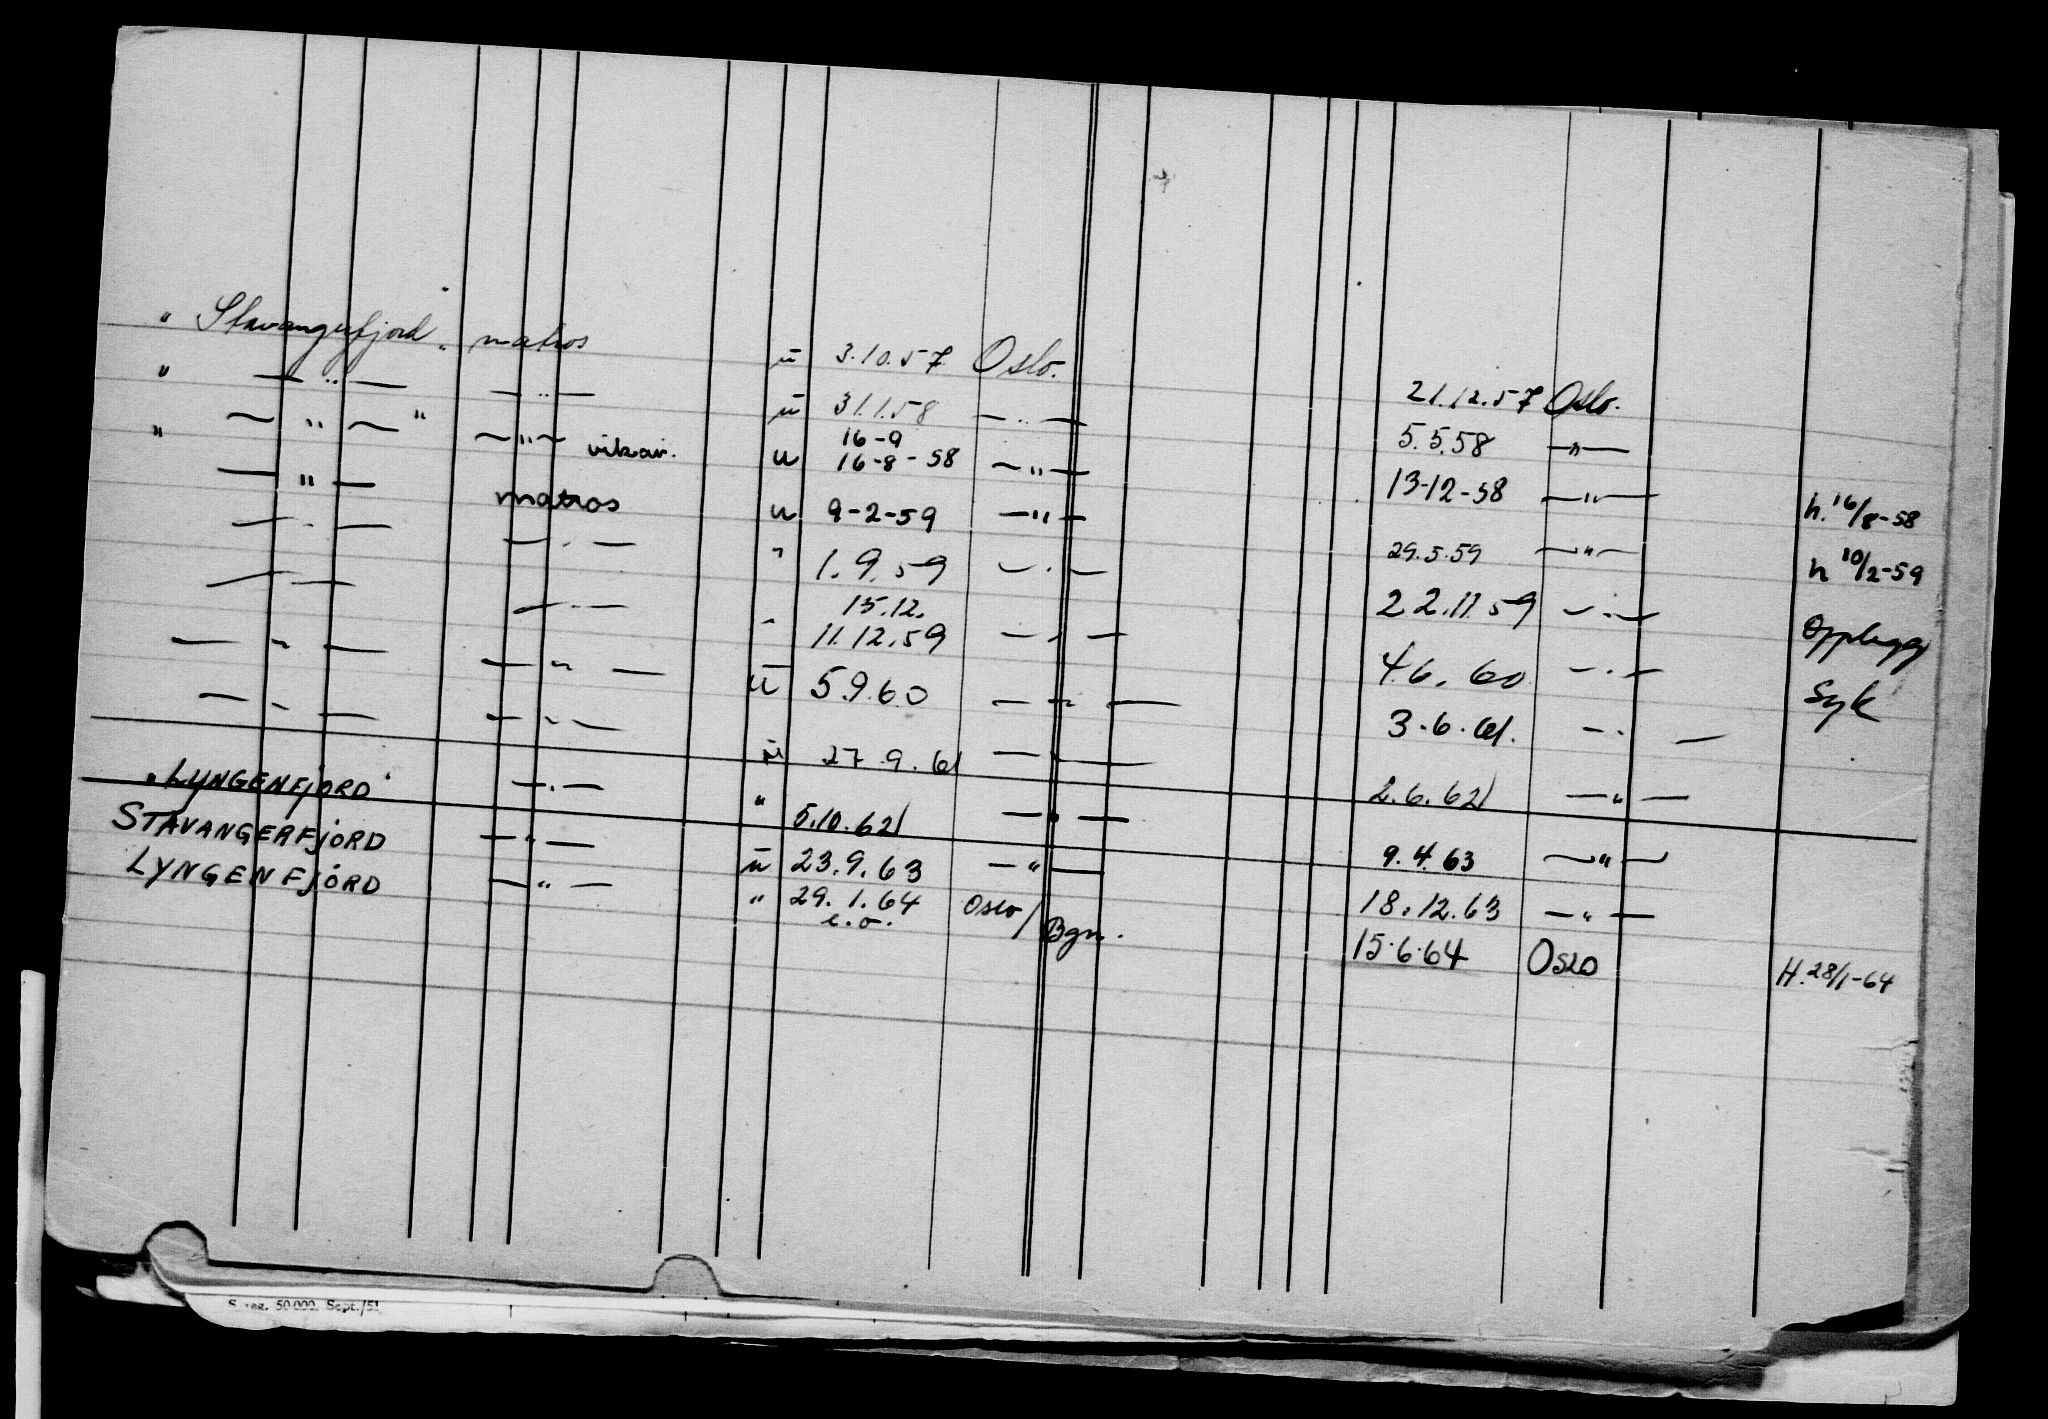 " Stavangerfjord " matros u 3.10.57 Oslo. 21.12.57 Oslo.
" — " — — " — u 31.1.58 — " — 5.5.58 — " —
— " — " — " — vikar. u 16-9 16-8-58 — " — 13-12-58 — " — h. 16/8-58
" — " — matros u 9-2-59 — " — 29.5.59 — " — h 10/2-59
— " — — " — " 1.9.59 — " — 22.11.59 — " — Opplagg
— — — " — " 15.12. 11.12.59 — " — 4.6.60 — " — Syk
— " — — " — u 5.9.60 — " — 3.6.61. — " —
— " — — " — u 27.9.61 — " — 2.6.62 — " —
"LYNGENFJORD" — " — " 5.10.62 — " — 9.4.63 — " —
STAVANGERFJORD — " — u 23.9.63 — " — 18.12.63 — " —
LYNGENFJORD — " — " 29.1.64 e.o. Oslo/Bgn. 15.6.64 OSLO H. 28/1-64
50 000. Sept./51